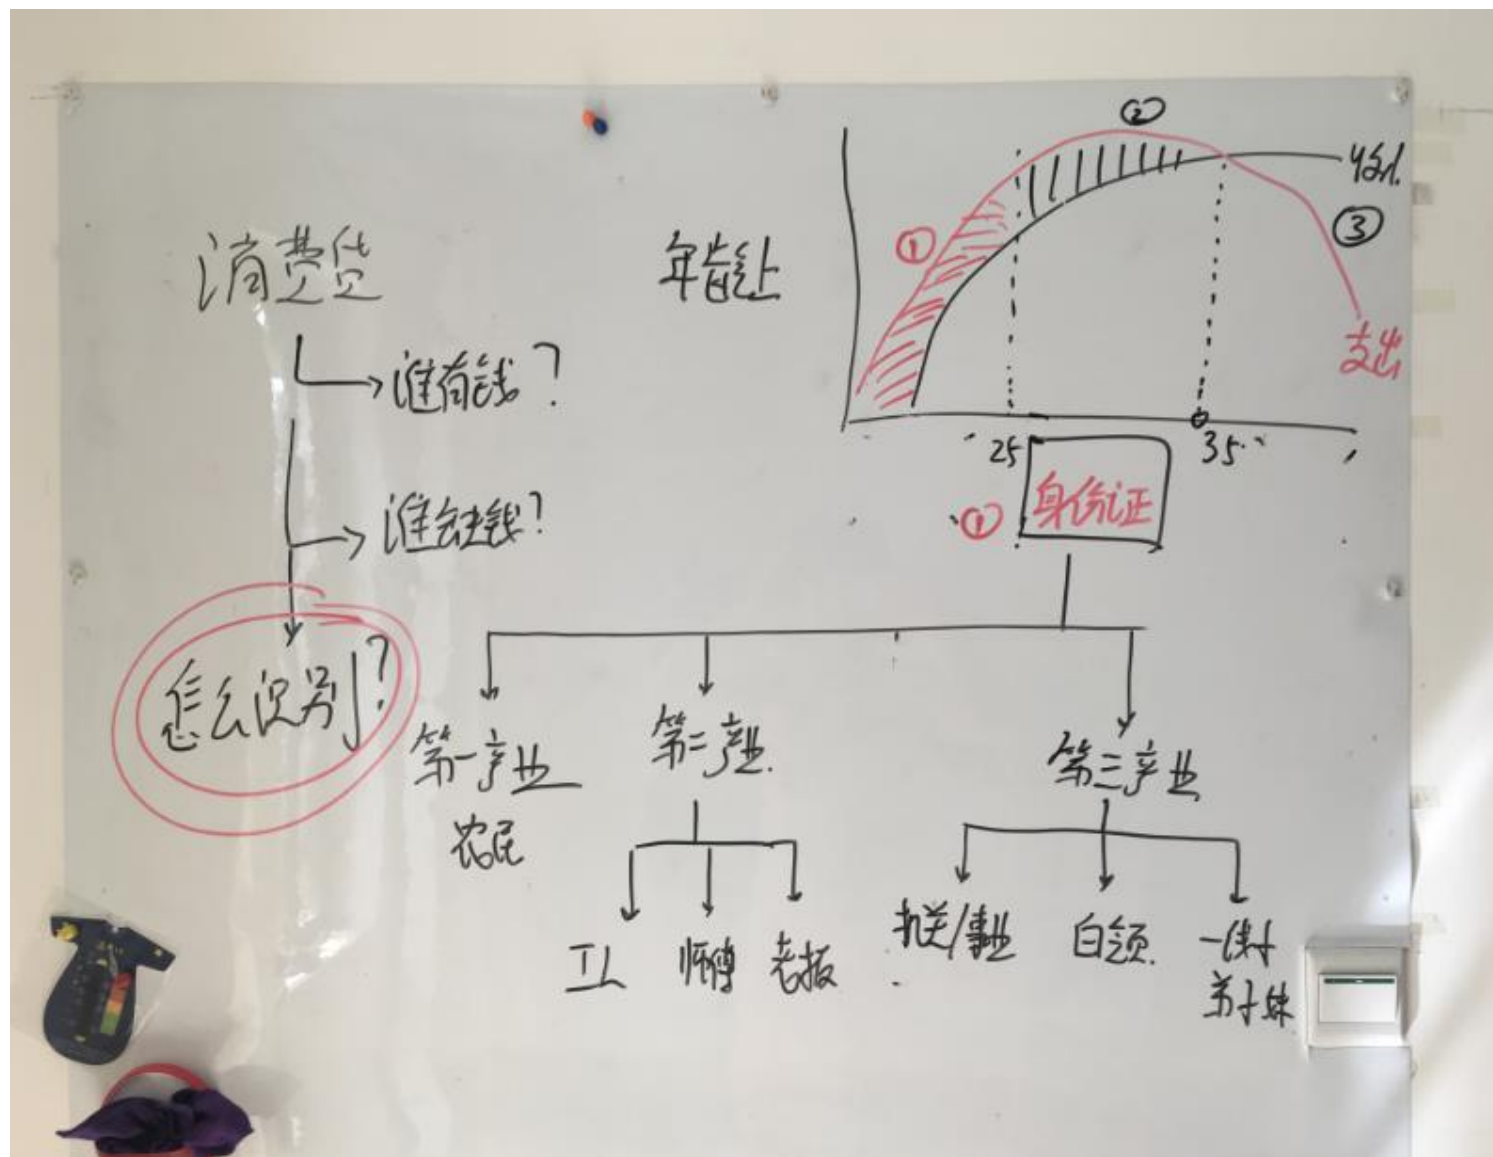 消费贷
谁有钱?
谁会还钱?
怎么识别?
年龄上
①
②
收入
③
支出
25
35
① 身份证
第一产业
农民
第二产业
工人
师傅
老板
第三产业
机关/事业
白领
一线